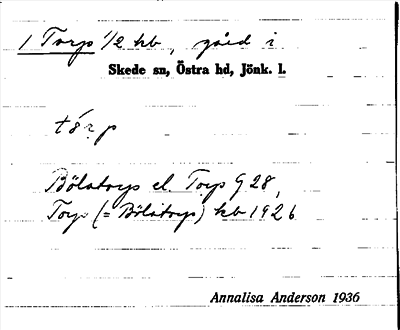 1 Torp 1/2 hb, gård i
Skede sn, Östra hd, Jönk. l.
tórp
Bölatorp el. Torp G 28,
Torp (= Bölatorp) kb 1926
Annalisa Anderson 1936